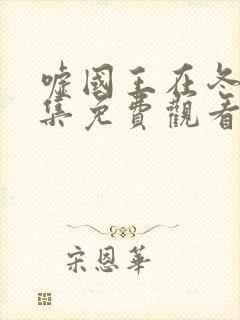 嘘國王在冬
集免費觀看
宋恩華